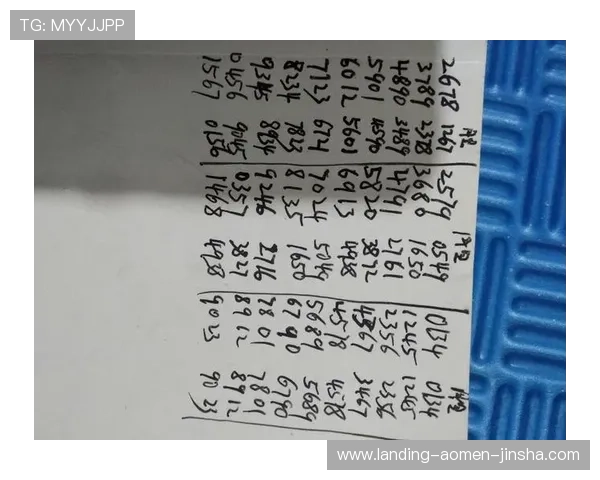 TG: MYYJJPP
2678 1267 2579 0549 0134 0134
3789 2378 3680 1650 1245 1245
4890 3489 4791 2761 2356 2356
5901 4590 5820 3872 3467
6012 5601 6913 4578 4578
7123 671 7024 5049 5689 5689
8234 7823 8135 1650 6790 6790
9345 8934 9246 2716 7801 7801
0456 9045 0357 3827 8912 8912
1567 0156 1468 4938 9023 9023
www.landing-aomen-jinsha.com